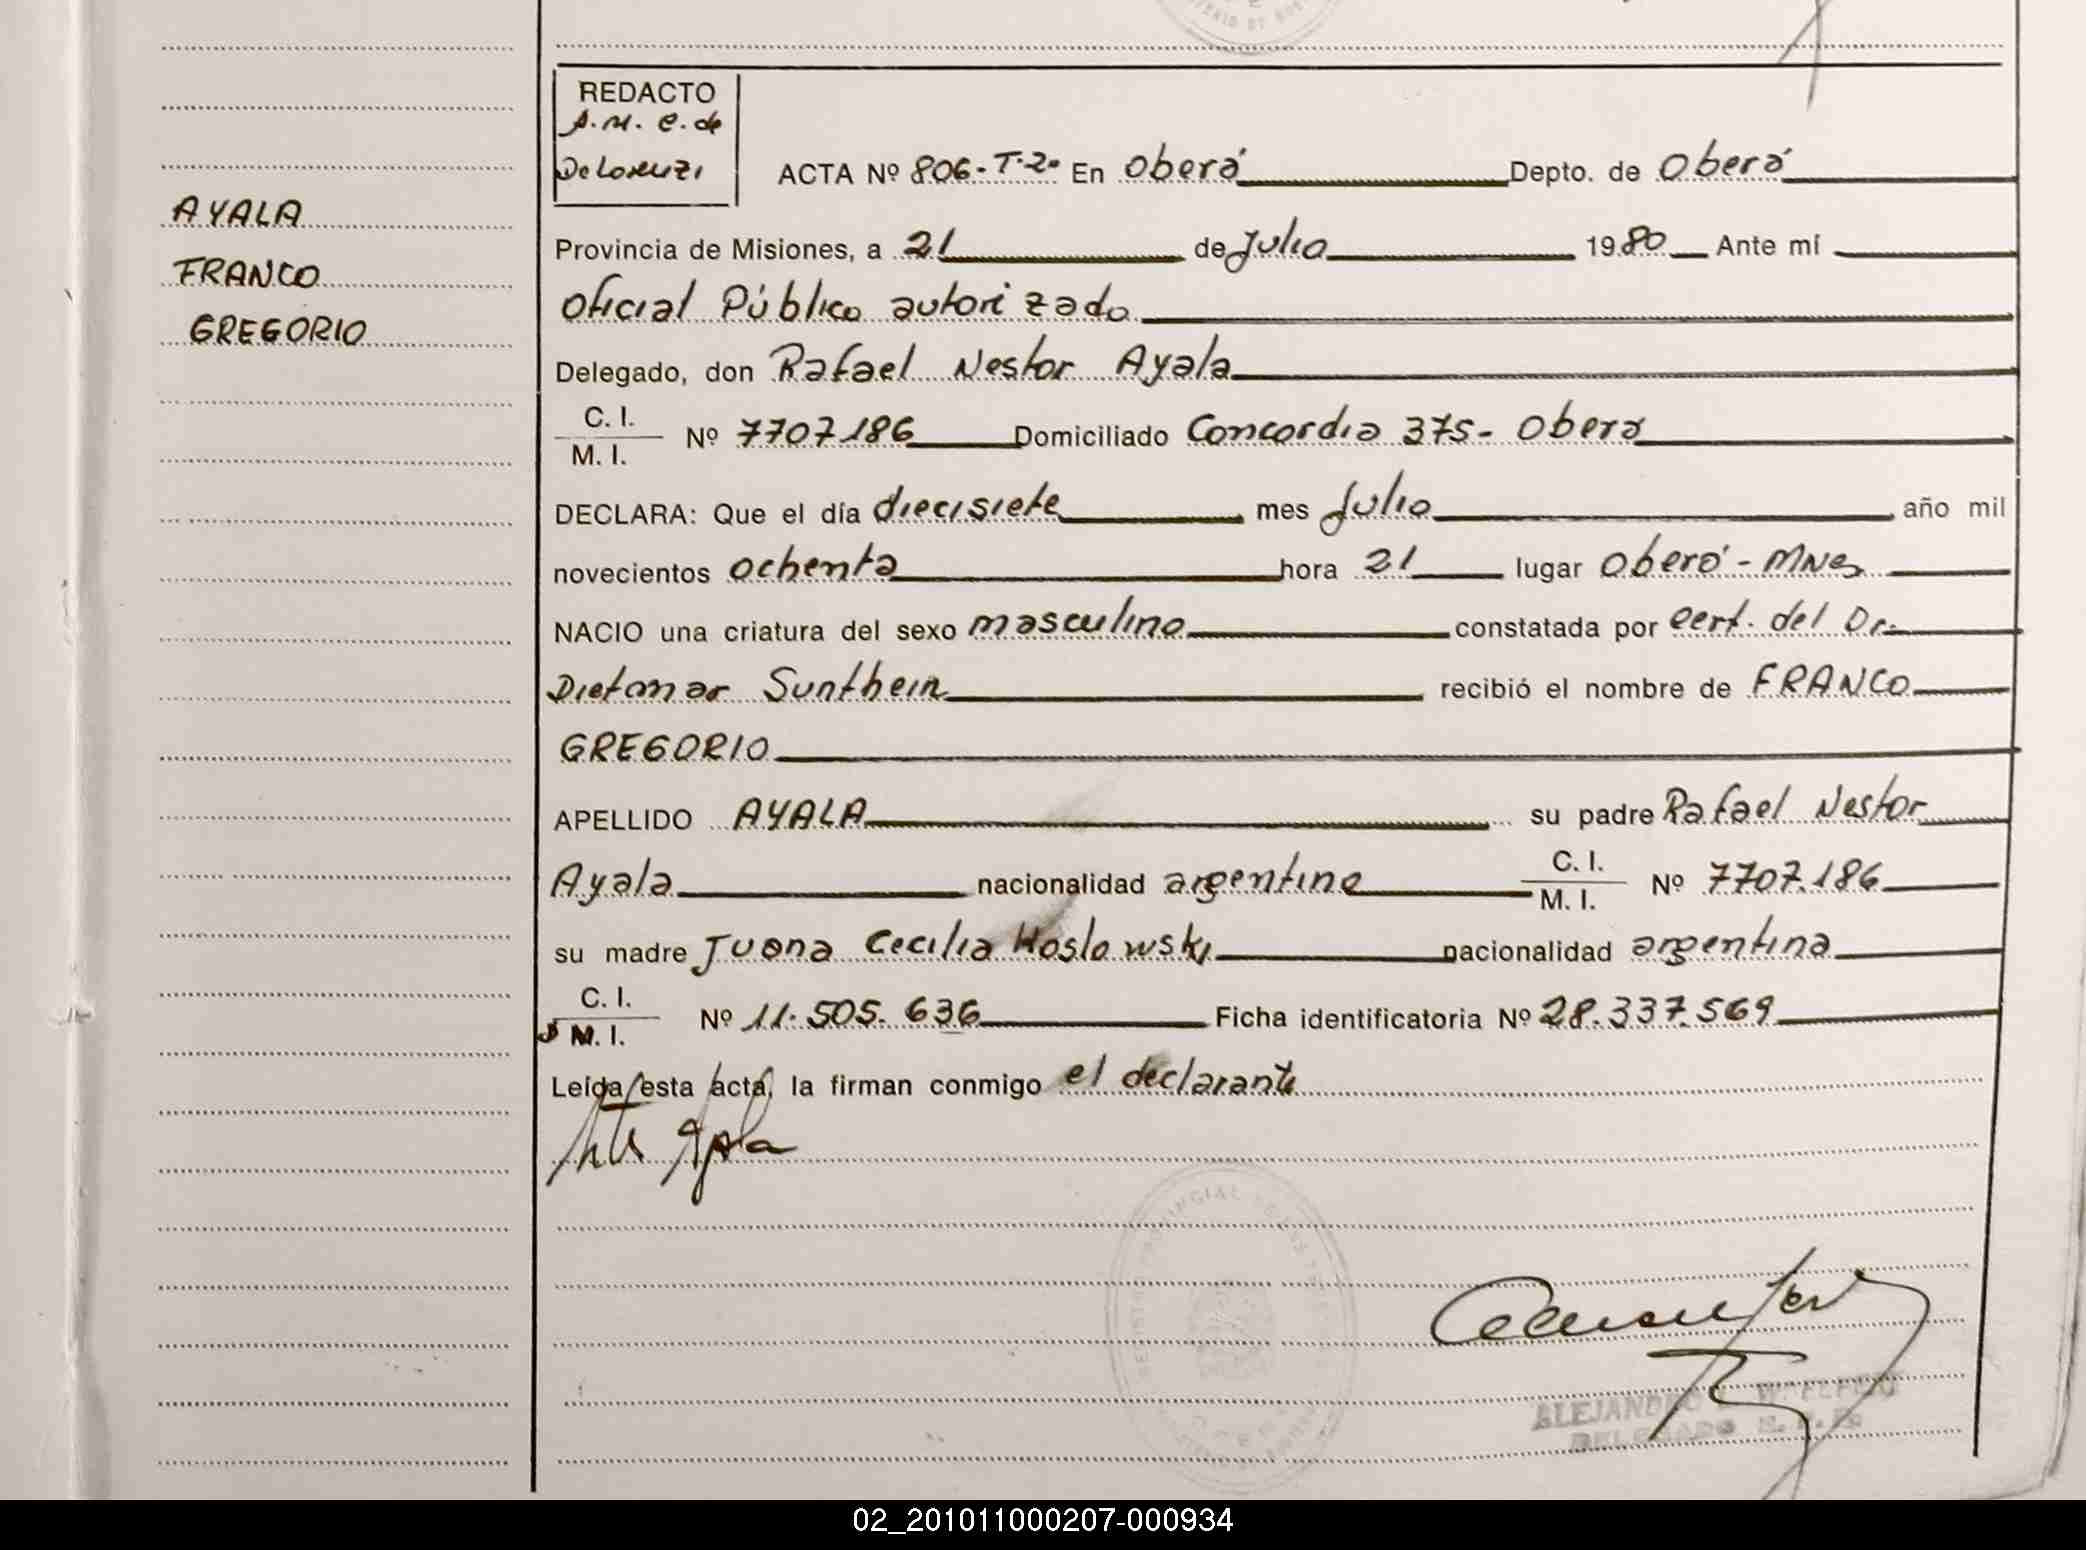 REDACTO
A.M.C. de
De Lorenzi
ACTA Nº 806-T-2º En Oberá Depto. de Oberá
AYALA
FRANCO
GREGORIO
Provincia de Misiones, a 21 de Julio 1980 Ante mí
Oficial Público autorizado
Delegado, don Rafael Nestor Ayala
C. I.
M. I. Nº 7707.186 Domiciliado Concordia 375- Oberá
DECLARA: Que el día diecisiete mes Julio año mil
novecientos ochenta hora 21 lugar Oberá - Mnes
NACIO una criatura del sexo masculino constatada por cert. del Dr.
Dietmar Sunthein recibió el nombre de FRANCO
GREGORIO
APELLIDO AYALA su padre Rafael Nestor
Ayala nacionalidad argentino C. I.
M. I. Nº 7707.186
su madre Juana Cecilia Hoslowski nacionalidad argentina
C. I.
M. I. Nº 11.505.636 Ficha identificatoria Nº 28.337.569
Leída esta acta, la firman conmigo el declarante
ALEJANDRO
DELEGADO
02_201011000207-000934